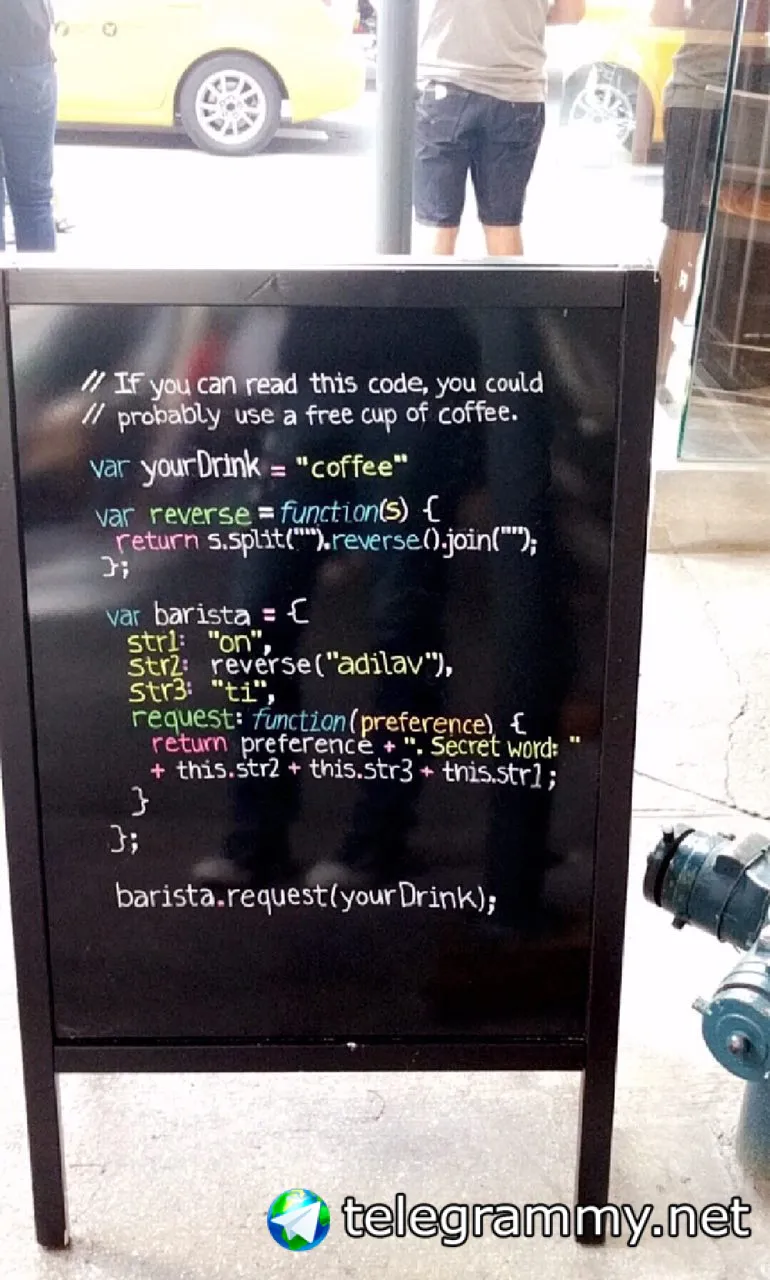 // If you can read this code, you could
// probably use a free cup of coffee.
var yourDrink = "coffee"
var reverse = function(s) {
return s.split("").reverse().join("");
};
var barista = {
str1: "on",
str2: reverse("adilav"),
str3: "ti",
request: function(preference) {
return preference + ". Secret word: "
+ this.str2 + this.str3 + this.str1;
}
};
barista.request(yourDrink);
telegrammy.net